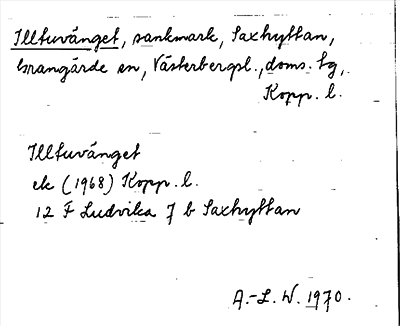 Illtuvänget, sankmark, Saxhyttan,
Grangärde sn, Västerbergsl., doms. tg,
Kopp. l.
Illtuvänget
ek (1968) Kopp. l.
12 F Ludvika 7 b Saxhyttan
A.-L. W. 1970.